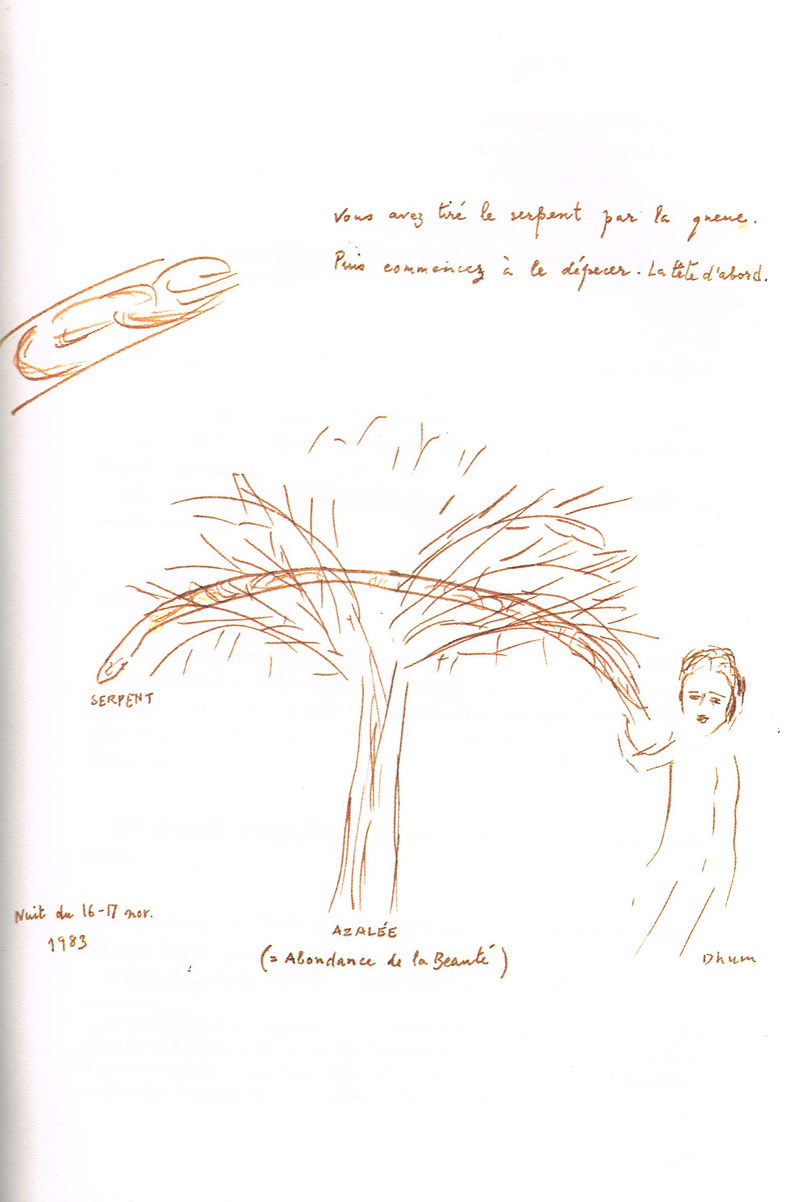 Vous avez tiré le serpent par la queue.
Puis commencez à le dépecer. La tête d'abord.
SERPENT
Nuit du 16-17 nov.
1983
AZALÉE
(= Abondance de la Beauté)
Dhum